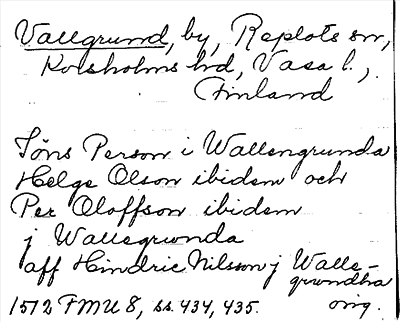 Vallgrund, by, Replots sn,
Korsholms hd, Vasa l.,
Finland
Jöns Person i Wallengrunda
Helge Olson ibidem och
Per Oloffson ibidem
j Wallegrunda
aff Hindric Nilsson j Walle-
grwndha
1572 FMU 8, ss. 434, 435. orig.